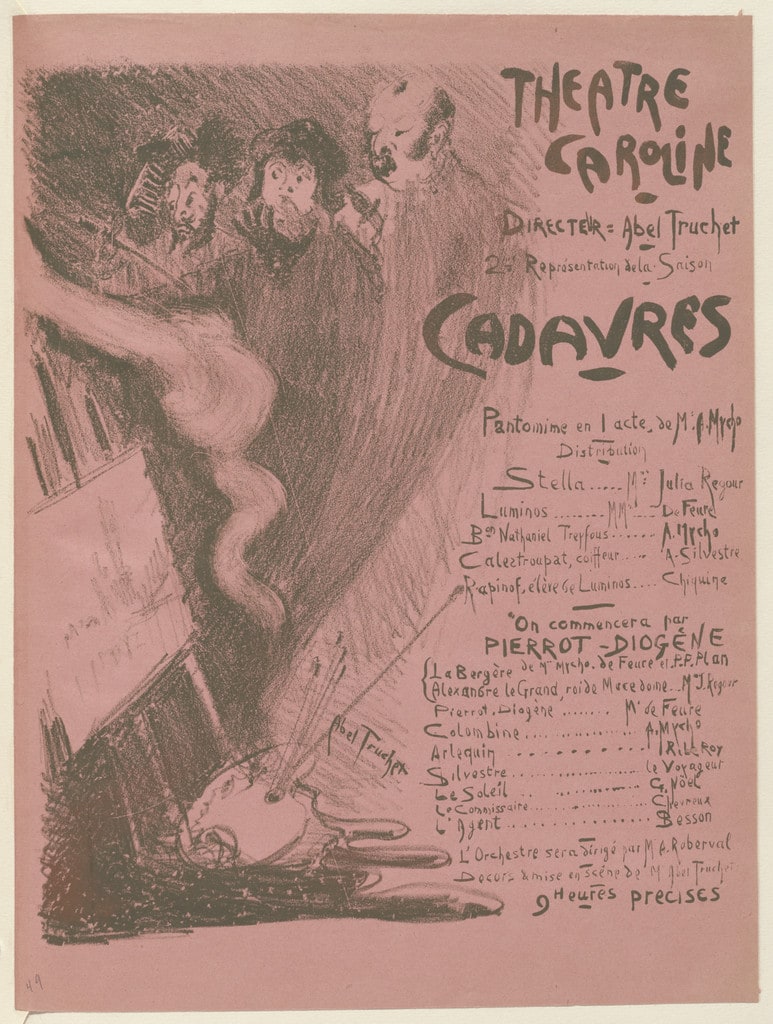 THEATRE
CAROLINE
DIRECTEUR = Abel Truchet
2me Représentation de la Saison
CADAVRES
Pantomime en 1 acte, de Mr A. Mycho
Distribution
Stella ..... Mlle Julia Regour
Luminos ..... MM De Feure
Bon Nathaniel Treyfous ..... A. Mycho
Calestroupat, coiffeur ..... A. Silvestre
Rapinof, élève de Luminos .... Chiquine
On commencera par
PIERROT-DIOGÈNE
de Mrs Mycho, de Feure et P.P. Plan
La Bergère
Alexandre le Grand, roi de Macedoine .. Mlle J. Regour
Pierrot-Diogène ........ Mr de Feure
Colombine ............... A. Mycho
Arlequin .............. R. LL ROY
Silvestre .............. le Voyageur
Le Soleil .............. G. Nöel
Le Commissaire .............. Chevreux
L'Agent .............. Besson
L'Orchestre sera dirigé par M A. Roberval
Decors & mise en scène de Mr Abel Truchet
9 Heures précises
Abel Truchet
49